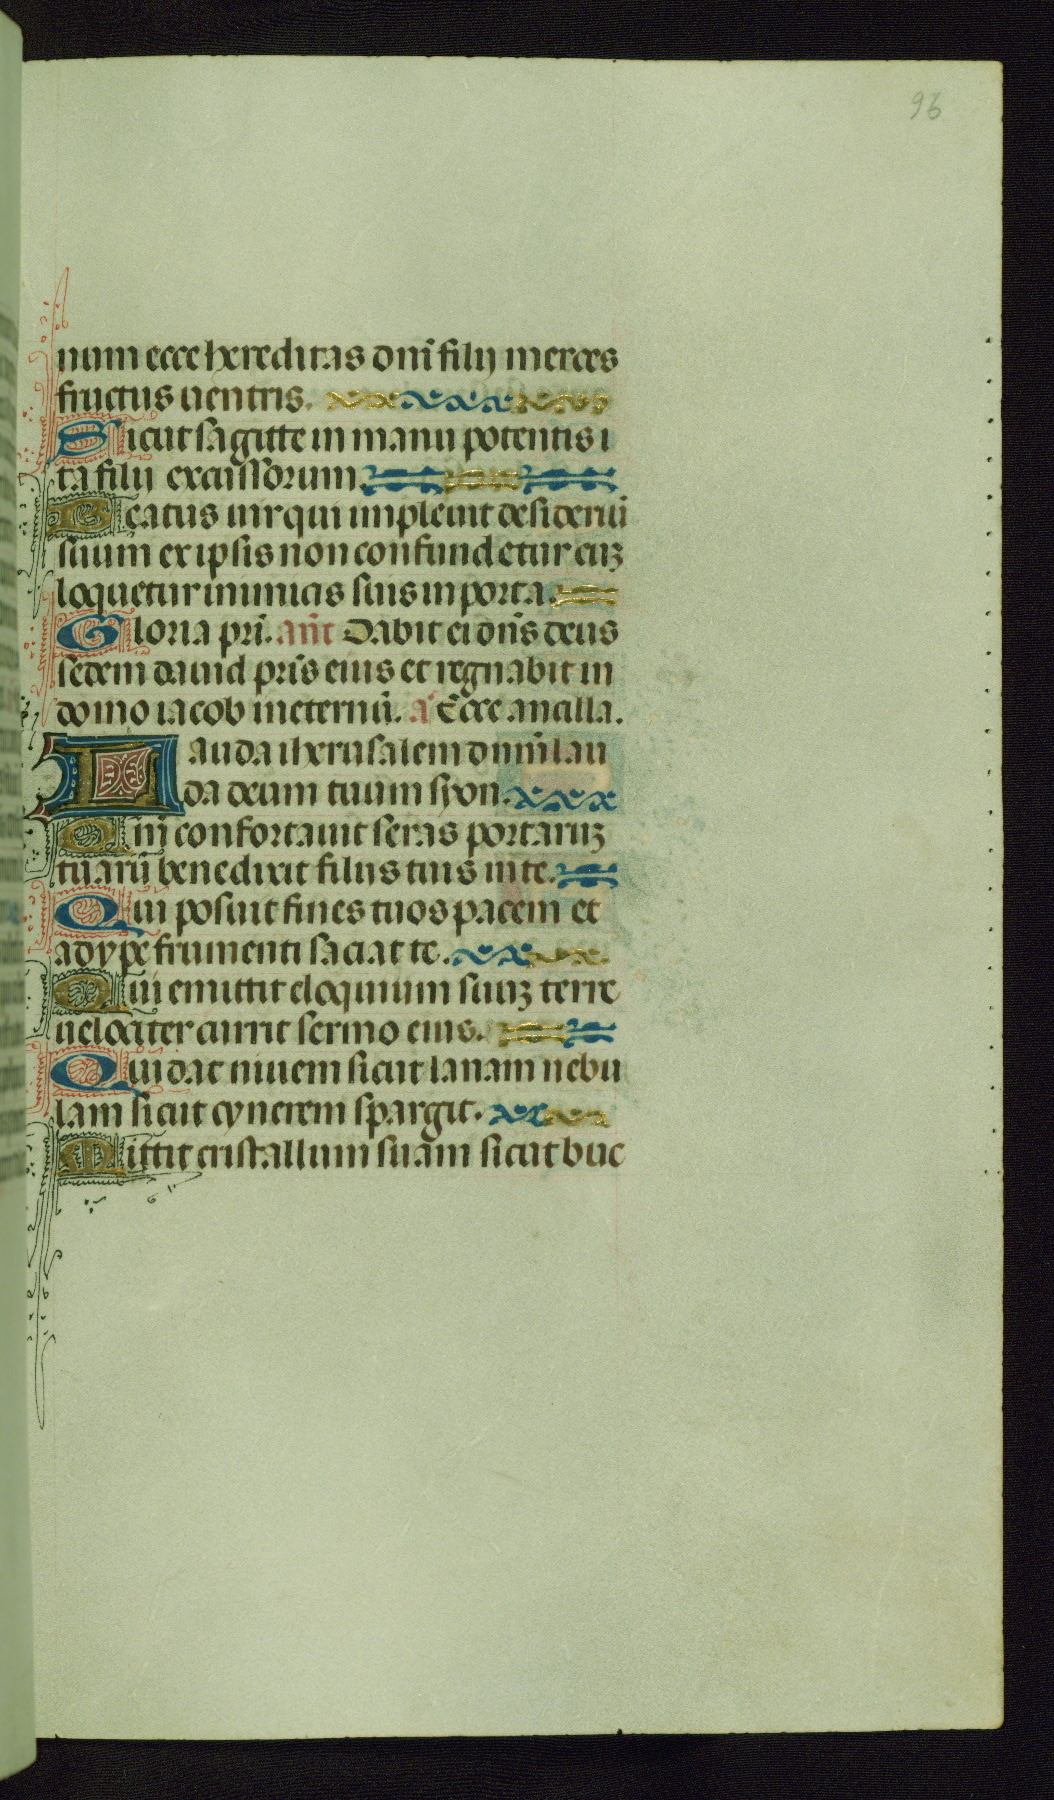 96
num ecce hereditas dn̄i filij merces
fructus uentris.
Sicut sagitte in manu potentis i
ta filij excussorum.
Beatus uir qui impleuit desideriū
suum ex ipsis non confundetur cuꝫ
loquetur inimicis suis in porta.
Gloria pr̄i. an̄t Dabit ei dn̄s deus
sedem dauid pr̄is eius et regnabit in
domo iacob in eternū. a͛ Ecce ancilla.
Lauda iherusalem dominū lau
da deum tuum syon.
Qm̄ confortauit seras portaruꝫ
tuarū benedixit filijs tuis in te.
Qui posuit fines tuos pacem et
adype frumenti saciat te.
Qui emittit eloquium suuꝫ terre
uelociter currit sermo eius.
Qui dat niuem sicut lanam nebu
lam sicut cynerem spargit.
Mittit cristallum suam sicut buc